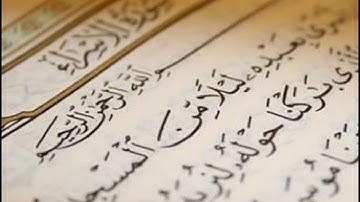 سُورَةُ الإِسْرَاءِ
ٱللَّهِ ٱلرَّحْمَٰنِ ٱلرَّحِيمِ
بِعَبْدِهِۦ لَيْلًا مِّنَ ٱلْمَسْجِ
بَٰرَكْنَا حَوْلَهُۥ لِنُرِيَهُ